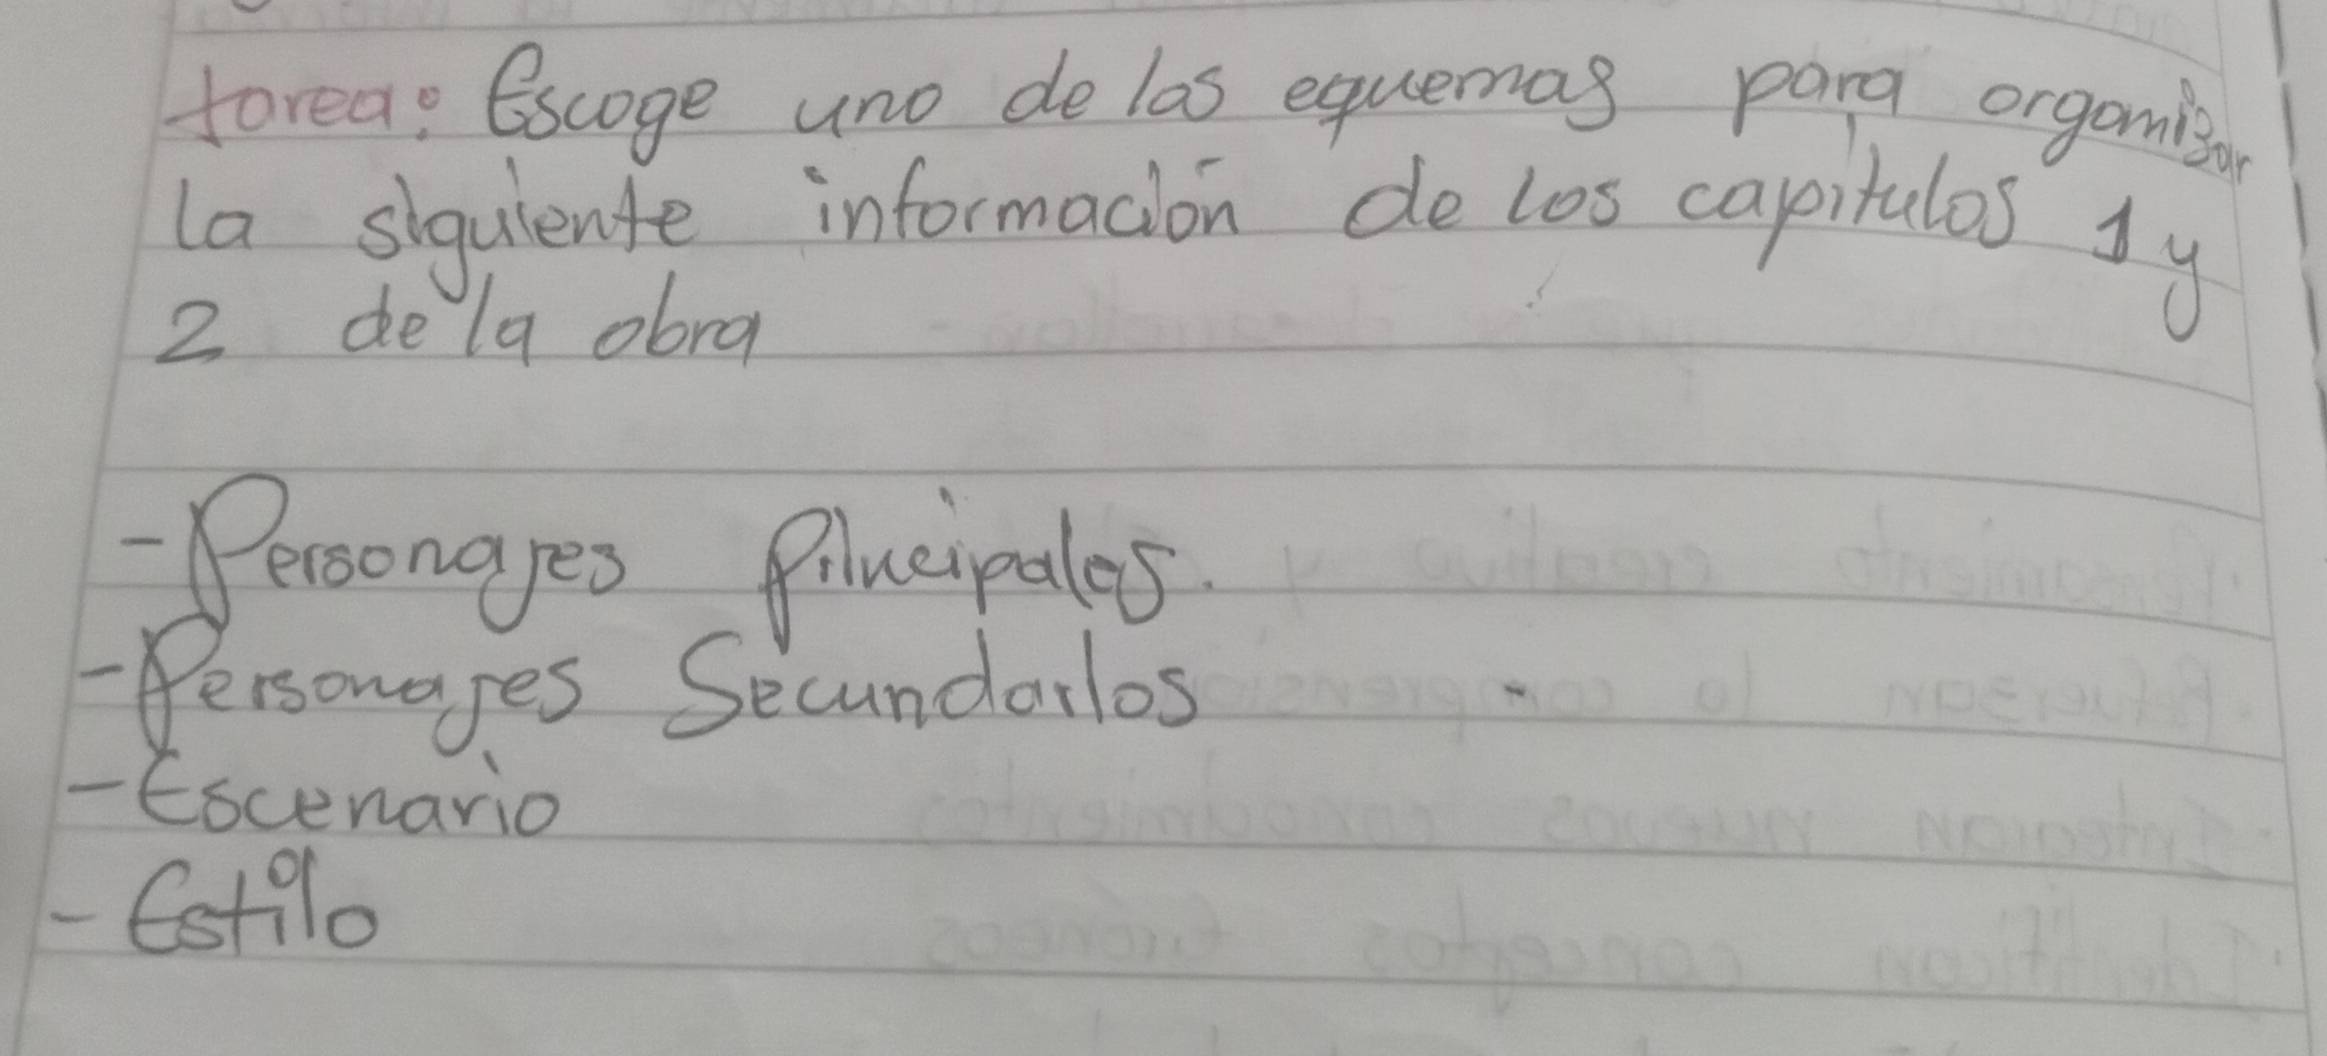 tarea: Escoge uno de las equemas para organizar
la siguiente información de los capitulos 1 y
2 de la obra
- Personajes Principales.
- Personajes Secundarios
- Escenario
- Estilo